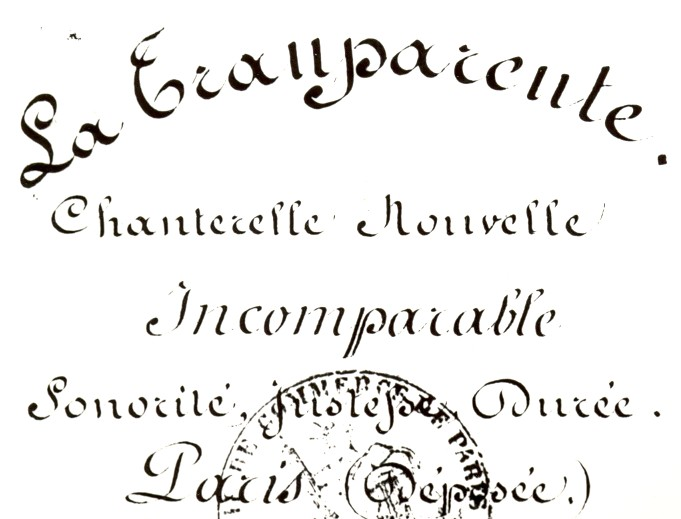 La Transparente.
Chanterelle Nouvelle
Incomparable
Sonorité, justesse, Durée.
Paris (Déposée.)
COMMERCE DE PARIS